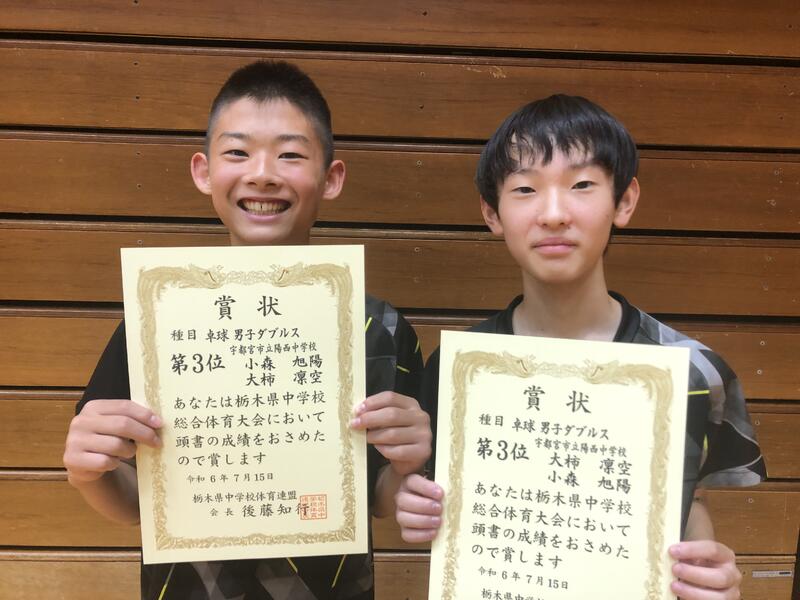 賞状
種目 卓球 男子ダブルス
宇都宮市立陽西中学校
第3位 小森 旭陽
大柿 凛空
あなたは栃木県中学校
総合体育大会において
頭書の成績をおさめた
ので賞します
令和6年7月15日
栃木県中学校体育連盟
会長 後藤知行
賞状
種目 卓球 男子ダブルス
宇都宮市立陽西中学校
第3位 大柿 凛空
小森 旭陽
あなたは栃木県中学校
総合体育大会において
頭書の成績をおさめた
ので賞します
令和6年7月15日
栃木県中学